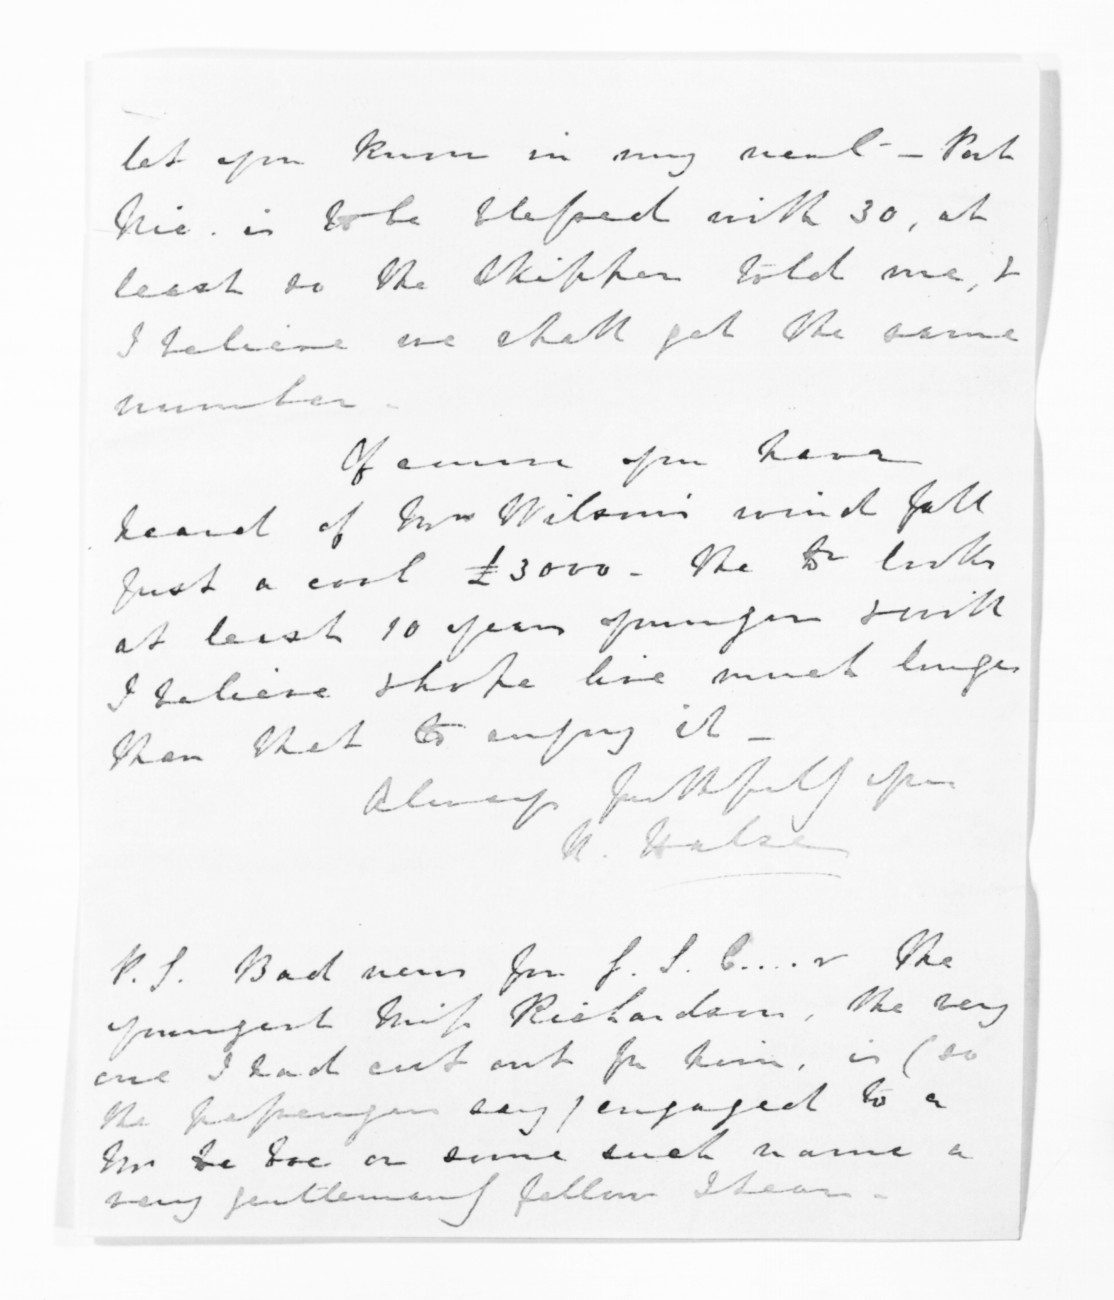 let you know in my next — Port
Nic. is to be blessed with 30, at
least so the Skipper told me, &
I believe we shall get the same
number.
Of course you have
heard of Mrs Wilson's wind fall
Just a cool £3000 - The Dr looks
at least 10 years younger & will
I believe & hope live much longer
than that to enjoy it —
Always faithfully yrs
H. Halse
P.S. Bad news for J. S. C....r The
youngest Miss Richardson, the very
one I had cut out for him, is (so
the passengers say) engaged to a
Mr or some such name a
very gentlemanly fellow I hear -